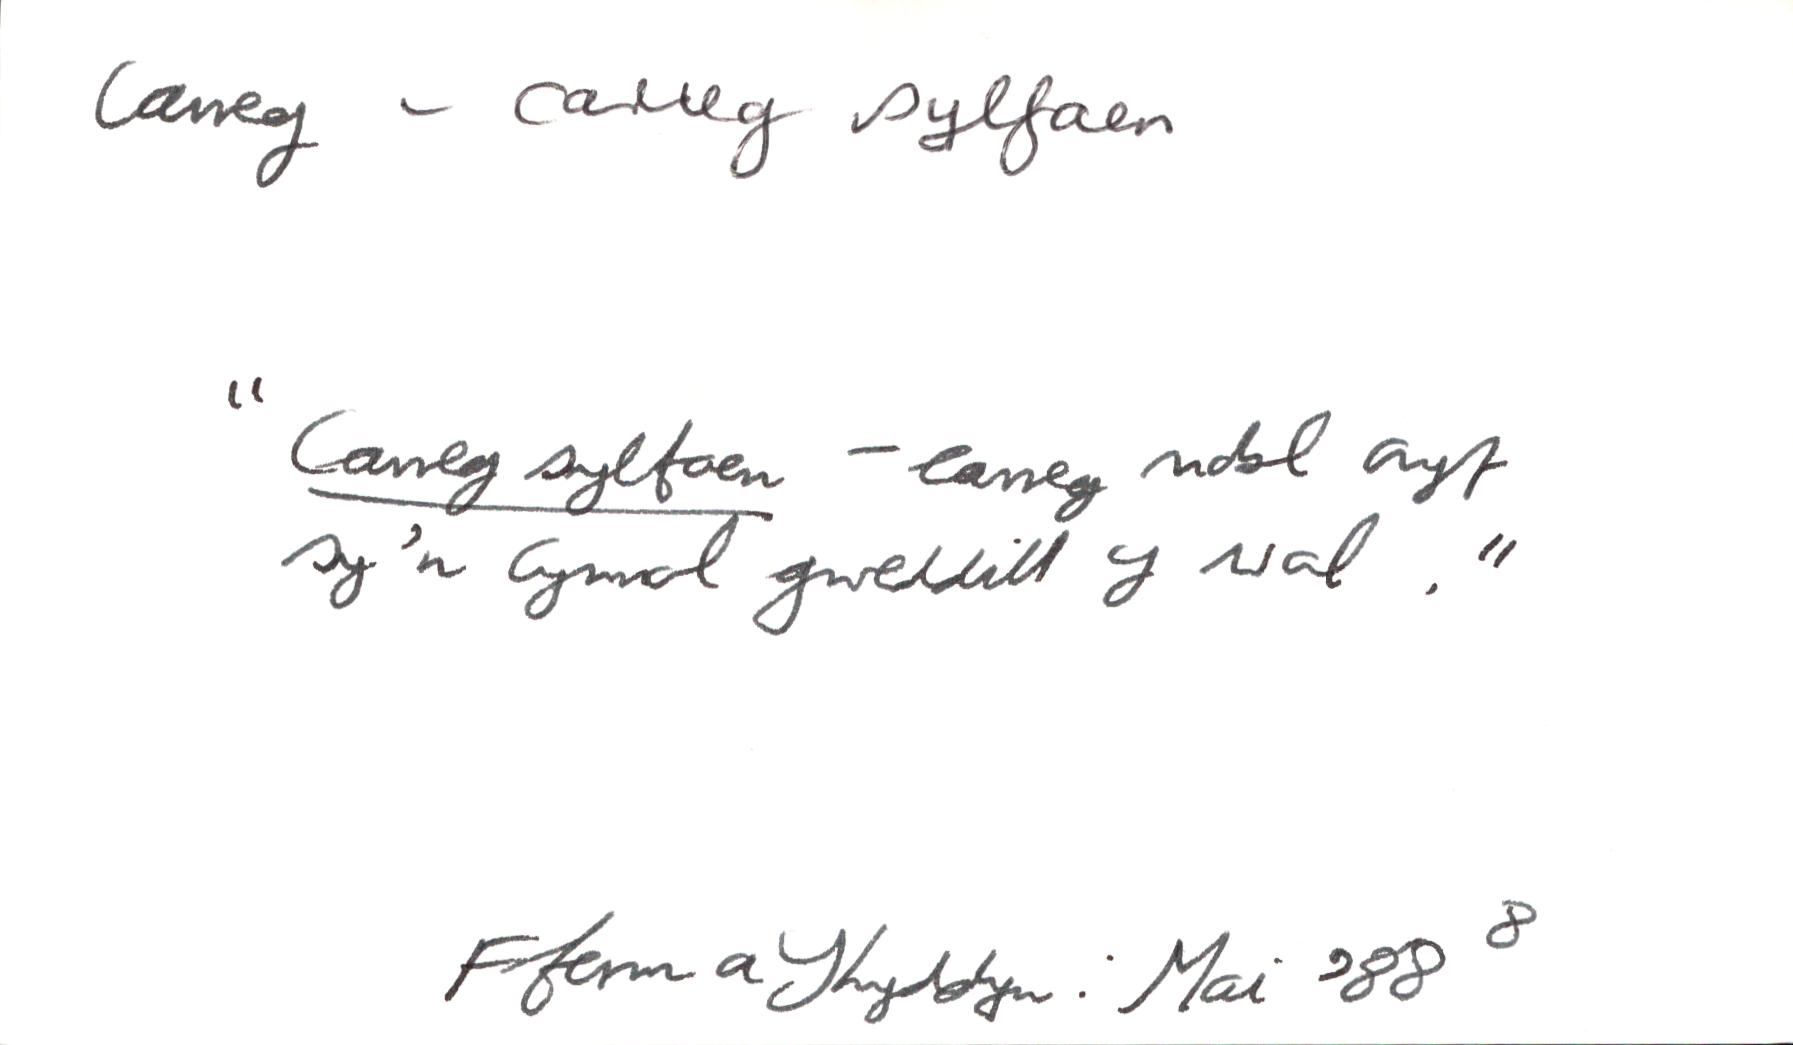 Carreg - carreg sylfaen
"Carreg sylfaen - carreg nobl gryf
sy'n cynnal gweddill y wal."
Fferm a Thyddyn: Mai '88 8